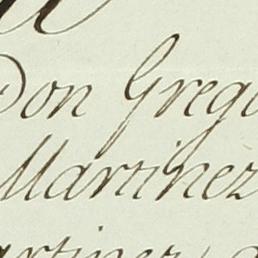 Don Grego
Martinez
artinez